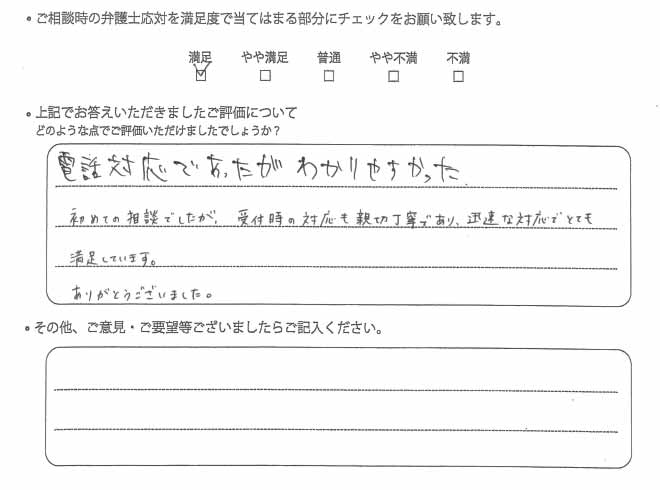 • ご相談時の弁護士応対を満足度で当てはまる部分にチェックをお願い致します。
満足 やや満足 普通 やや不満 不満
☑ □ □ □ □
• 上記でお答えいただきましたご評価について
どのような点でご評価いただけましたでしょうか？
電話対応であったがわかりやすかった
初めての相談でしたが、受付時の対応も親切丁寧であり、迅速な対応でとても
満足しています。
ありがとうございました。
• その他、ご意見・ご要望等ございましたらご記入ください。